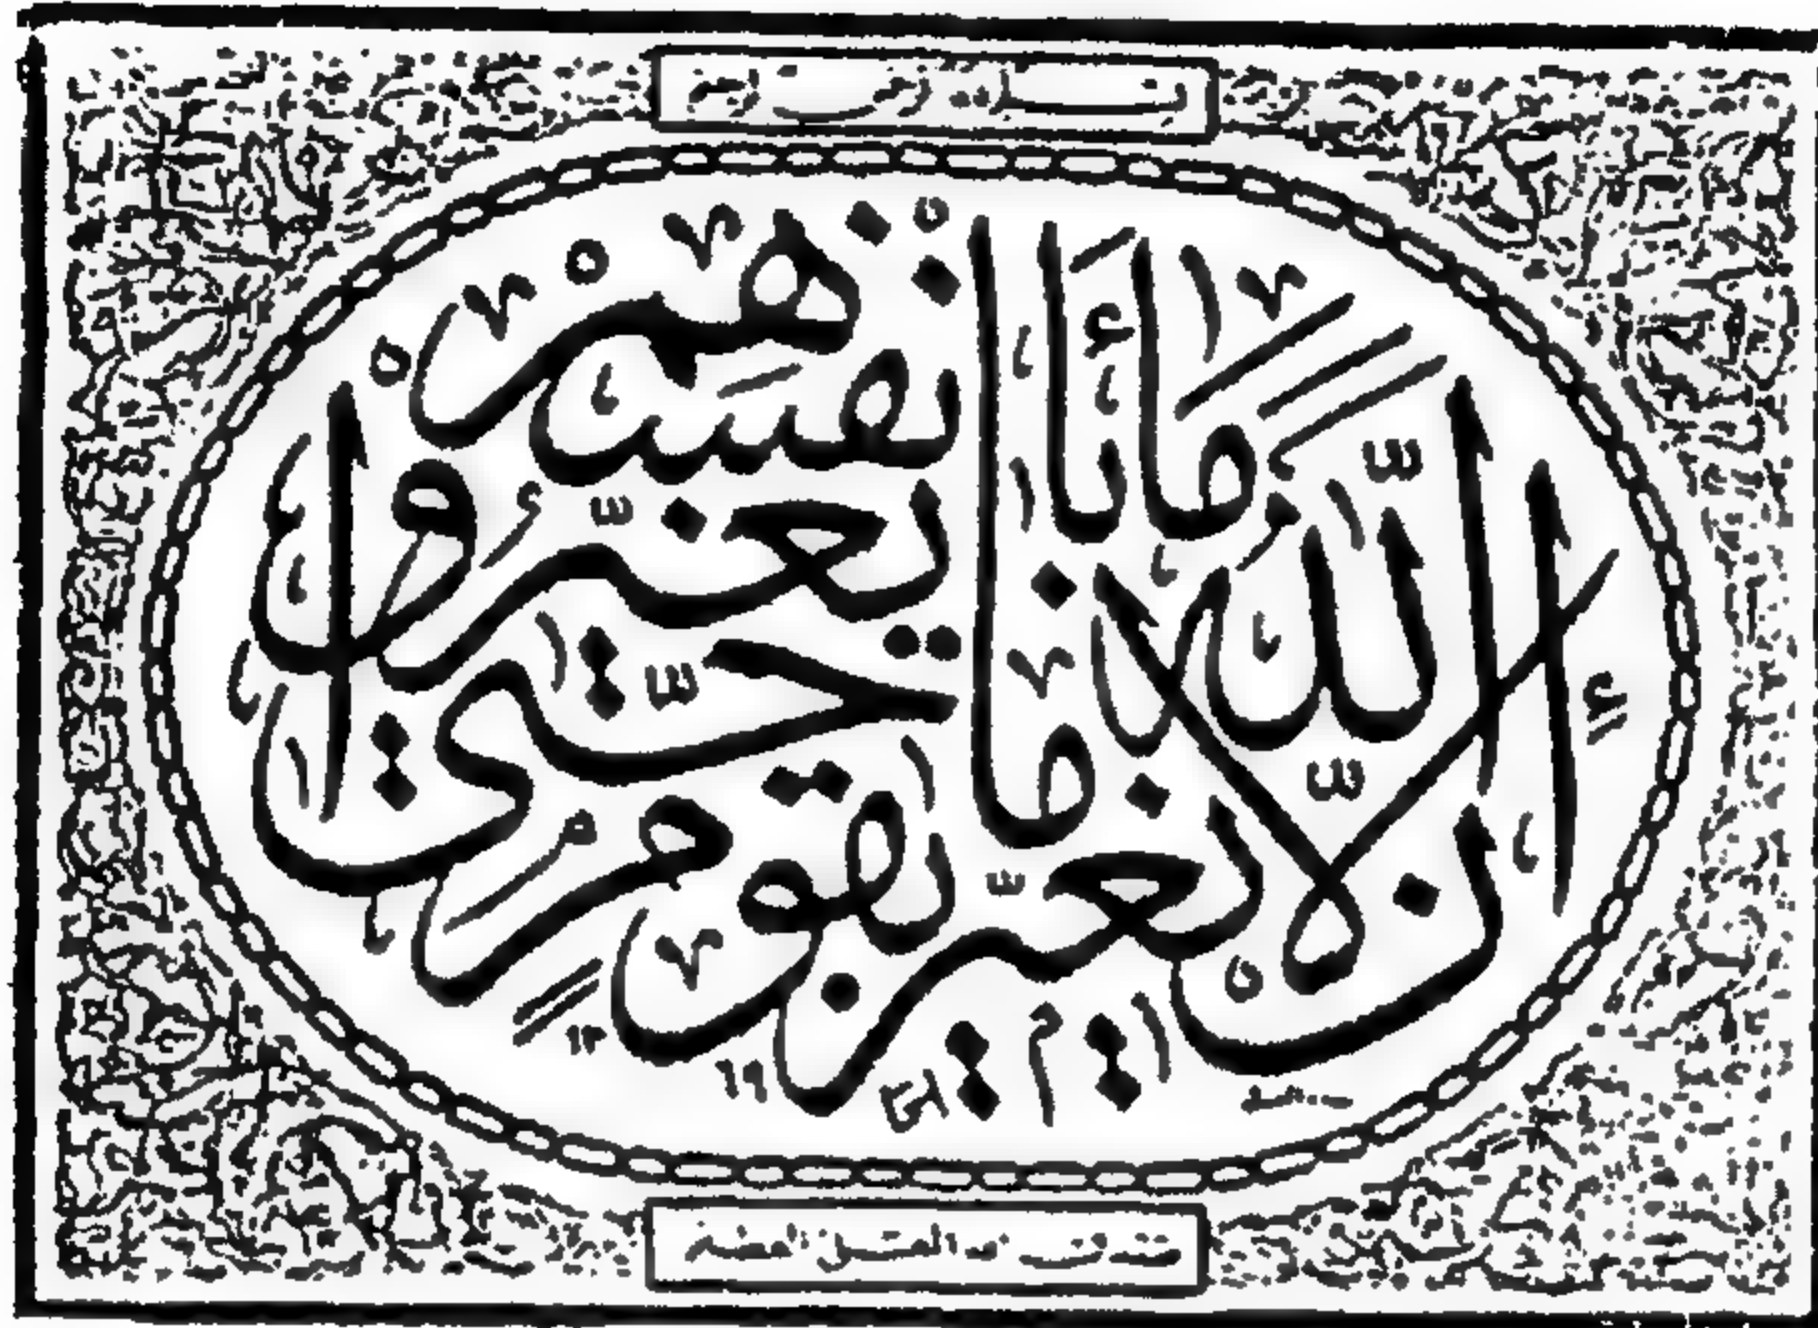 بسم الله الرحمن الرحيم
إِنَّ اللّٰهَ لَا يُغَيِّرُ مَا بِقَوْمٍ حَتّٰى يُغَيِّرُوا مَا بِأَنْفُسِهِمْ
صدق الله العظيم